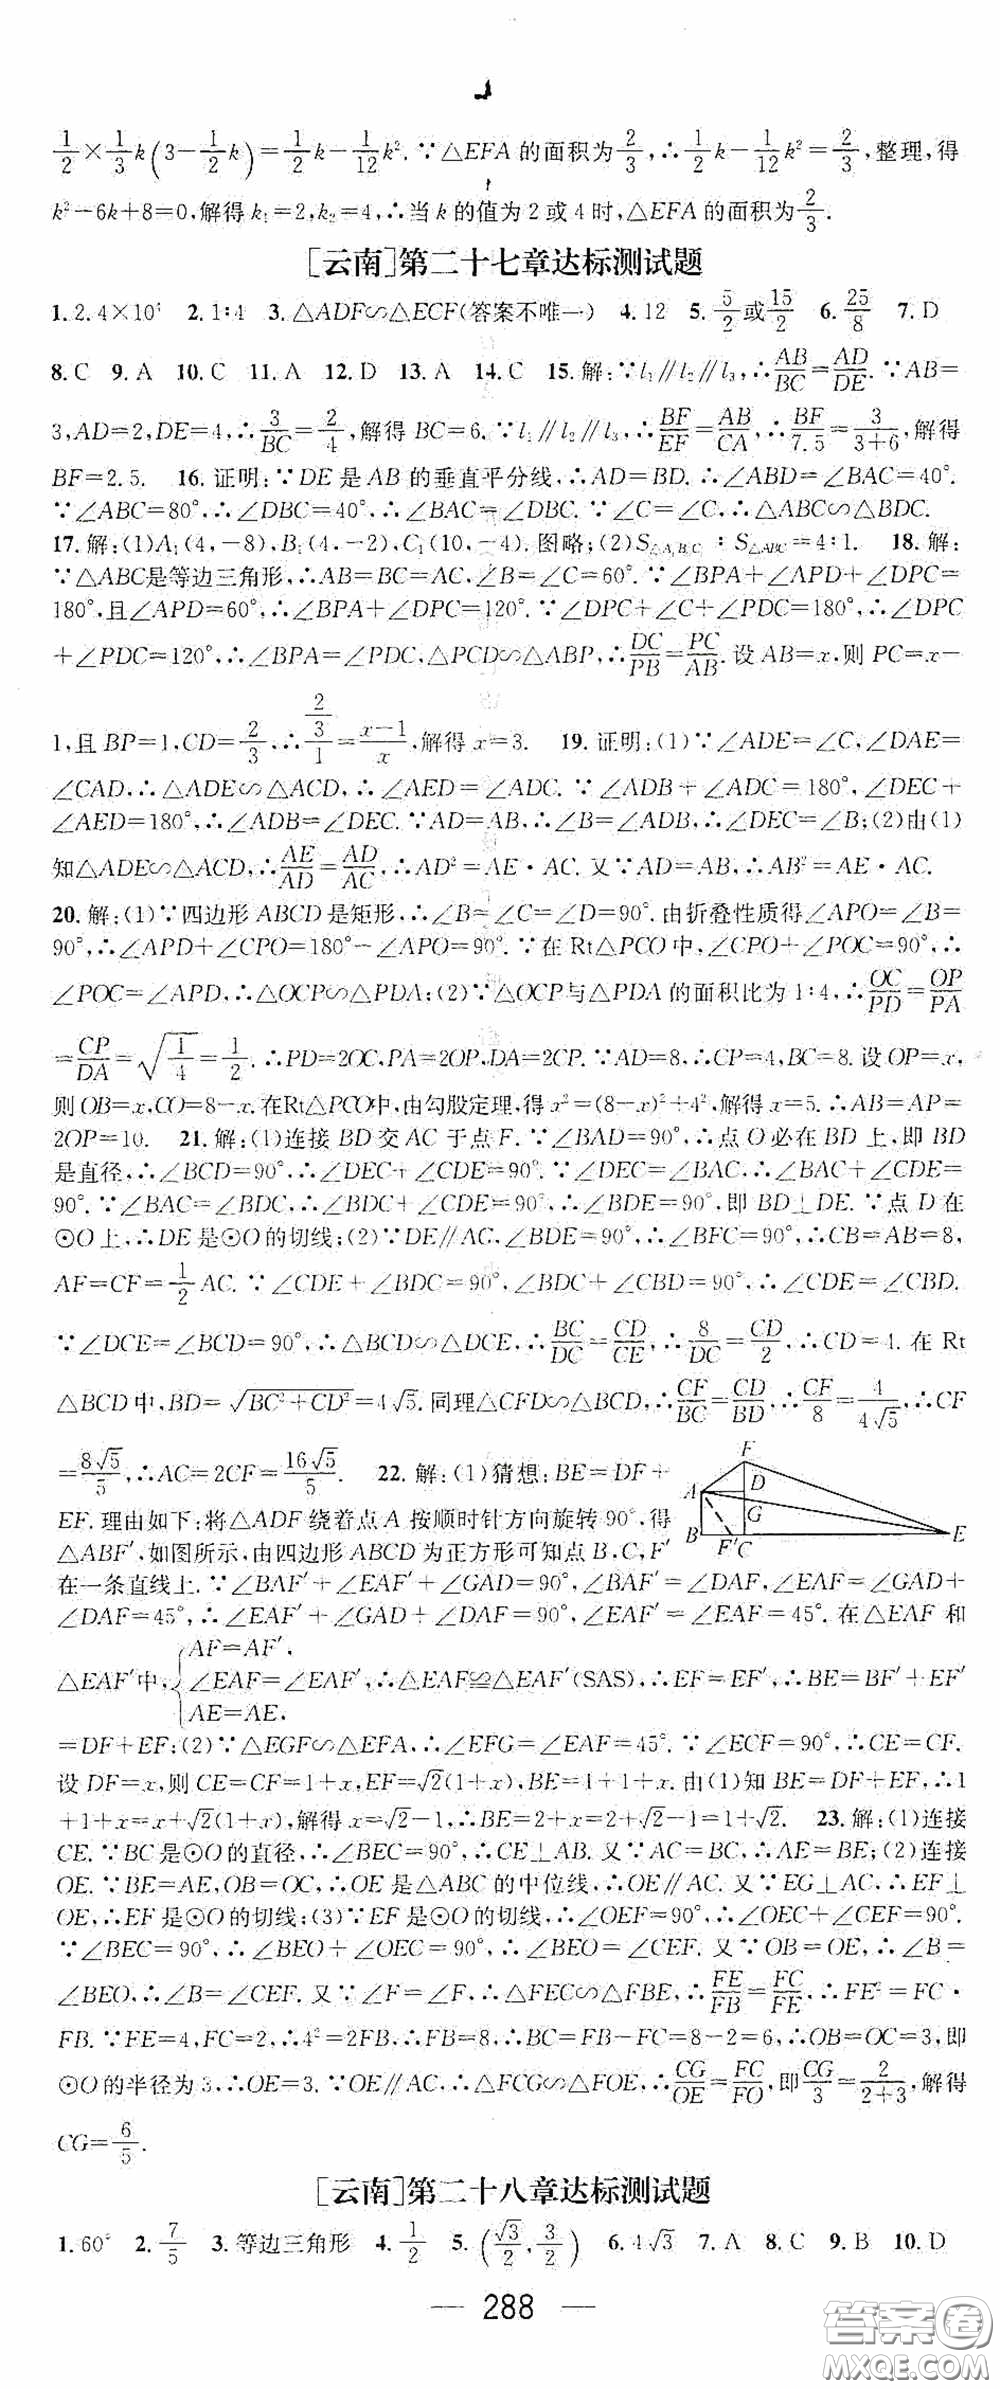 1/2×1/3k(3-1/2k)=1/2k-1/12k². ∵△EFA的面积为2/3,∴1/2k-1/12k²=2/3,整理,得
k²-6k+8=0,解得k₁=2,k₂=4,∴当k的值为2或4时,△EFA的面积为2/3.
[云南]第二十七章达标测试题
1. 2.4×10⁵ 2. 1∶4 3. △ADF∽△ECF(答案不唯一) 4. 12 5. 5/2或15/2 6. 25/8 7. D
8. C 9. A 10. C 11. A 12. D 13. A 14. C 15. 解:∵l₁∥l₂∥l₃,∴AB/BC=AD/DE. ∵AB=
3,AD=2,DE=4,∴3/BC=2/4,解得BC=6. ∵l₁∥l₂∥l₃,∴BF/EF=AB/CA,∴BF/7.5=3/(3+6),解得
BF=2.5. 16. 证明:∵DE是AB的垂直平分线,∴AD=BD. ∴∠ABD=∠BAC=40°.
∵∠ABC=80°,∴∠DBC=40°,∴∠BAC=∠DBC. ∵∠C=∠C,∴△ABC∽△BDC.
17. 解:(1)A₁(4,-8),B₁(4,-2),C₁(10,-4). 图略;(2)S△A₁B₁C₁∶S△ABC=4∶1. 18. 解:
∵△ABC是等边三角形,∴AB=BC=AC,∠B=∠C=60°. ∵∠BPA+∠APD+∠DPC=
180°,且∠APD=60°,∴∠BPA+∠DPC=120°. ∵∠DPC+∠C+∠PDC=180°,∴∠DPC
+∠PDC=120°,∴∠BPA=∠PDC,△PCD∽△ABP,∴DC/PB=PC/AB. 设AB=x,则PC=x-
1,且BP=1,CD=2/3,∴(2/3)/1=(x-1)/x,解得x=3. 19. 证明:(1)∵∠ADE=∠C,∠DAE=
∠CAD,∴△ADE∽△ACD,∴∠AED=∠ADC. ∵∠ADB+∠ADC=180°,∠DEC+
∠AED=180°,∴∠ADB=∠DEC. ∵AD=AB,∴∠B=∠ADB,∴∠DEC=∠B;(2)由(1)
知△ADE∽△ACD,∴AE/AD=AD/AC,∴AD²=AE·AC. 又∵AD=AB,∴AB²=AE·AC.
20. 解:(1)∵四边形ABCD是矩形,∴∠B=∠C=∠D=90°. 由折叠性质得∠APO=∠B=
90°,∴∠APD+∠CPO=180°-∠APO=90°. ∵在Rt△PCO中,∠CPO+∠POC=90°,∴
∠POC=∠APD,∴△OCP∽△PDA;(2)∵△OCP与△PDA的面积比为1∶4,∴OC/PD=OP/PA
=CP/DA=√(1/4)=1/2. ∴PD=2OC,PA=2OP,DA=2CP. ∵AD=8,∴CP=4,BC=8. 设OP=x,
则OB=x,CO=8-x. 在Rt△PCO中,由勾股定理,得x²=(8-x)²+4²,解得x=5. ∴AB=AP=
2OP=10. 21. 解:(1)连接BD交AC于点F. ∵∠BAD=90°,∴点O必在BD上,即BD
是直径,∴∠BCD=90°,∴∠DEC+∠CDE=90°. ∵∠DEC=∠BAC,∴∠BAC+∠CDE=
90°. ∵∠BAC=∠BDC,∴∠BDC+∠CDE=90°,∴∠BDE=90°,即BD⊥DE. ∵点D在
⊙O上,∴DE是⊙O的切线;(2)∵DE∥AC,∠BDE=90°,∴∠BFC=90°,∴CB=AB=8,
AF=CF=1/2AC. ∵∠CDE+∠BDC=90°,∠BDC+∠CBD=90°,∴∠CDE=∠CBD.
∵∠DCE=∠BCD=90°,∴△BCD∽△DCE,∴BC/DC=CD/CE,∴8/DC=CD/2,∴CD=4. 在Rt
△BCD中,BD=√(BC²+CD²)=4√5. 同理△CFD∽△BCD,∴CF/BC=CD/BD,∴CF/8=4/(4√5),∴CF
=8√5/5,∴AC=2CF=16√5/5. 22. 解:(1)猜想:BE=DF+
EF. 理由如下:将△ADF绕着点A按顺时针方向旋转90°,得
△ABF′,如图所示,由四边形ABCD为正方形可知点B,C,F′
F
A
D
G
B
F′C
E
在一条直线上. ∵∠BAF′+∠EAF′+∠GAD=90°,∠BAF′=∠DAF,∠EAF=∠GAD+
∠DAF=45°,∴∠EAF′+∠GAD+∠DAF=90°,∠EAF′=∠EAF=45°. 在△EAF和
△EAF′中,{AF=AF′, ∠EAF=∠EAF′, AE=AE, ∴△EAF≌△EAF′(SAS),∴EF=EF′,∴BE=BF′+EF′
=DF+EF;(2)∵△EGF∽△EFA,∴∠EFG=∠EAF=45°. ∵∠ECF=90°,∴CE=CF.
设DF=x,则CE=CF=1+x,EF=√2(1+x),BE=1+1+x. 由(1)知BE=DF+EF,∴1
+1+x=x+√2(1+x),解得x=√2-1,∴BE=2+x=2+√2-1=1+√2. 23. 解:(1)连接
CE. ∵BC是⊙O的直径,∴∠BEC=90°,∴CE⊥AB. 又∵AC=BC,∴AE=BE;(2)连接
OE. ∵BE=AE,OB=OC,∴OE是△ABC的中位线,∴OE∥AC. 又∵EG⊥AC,∴EF⊥
OE,∴EF是⊙O的切线;(3)∵EF是⊙O的切线,∴∠OEF=90°,∴∠OEC+∠CEF=90°.
∵∠BEC=90°,∴∠BEO+∠OEC=90°,∴∠BEO=∠CEF. 又∵OB=OE,∴∠B=
∠BEO,∴∠B=∠CEF. 又∵∠F=∠F,∴△FEC∽△FBE,∴FE/FB=FC/FE,∴FE²=FC·
FB. ∵FE=4,FC=2,∴4²=2FB,∴FB=8,∴BC=FB-FC=8-2=6,∴OB=OC=3,即
⊙O的半径为3,∴OE=3. ∵OE∥AC,∴△FCG∽△FOE,∴CG/OE=FC/FO,即CG/3=2/(2+3),解得
CG=6/5.
[云南]第二十八章达标测试题
1. 60° 2. 7/5 3. 等边三角形 4. 1/2 5. (√3/2,3/2) 6. 4√3 7. A 8. C 9. B 10. D
— 288 —
答案卷
MXQE.COM